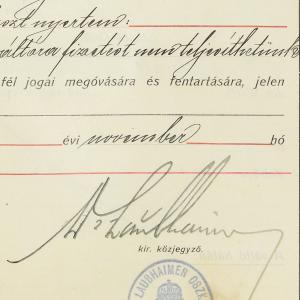 közt nyertem:
váltóra fizetést nem teljesíthetünk
fél jogai megóvására és fentartására, jelen
évi november hó
Dr Laubhaimer
kir. közjegyző.
LAUBHAIMER OSZK